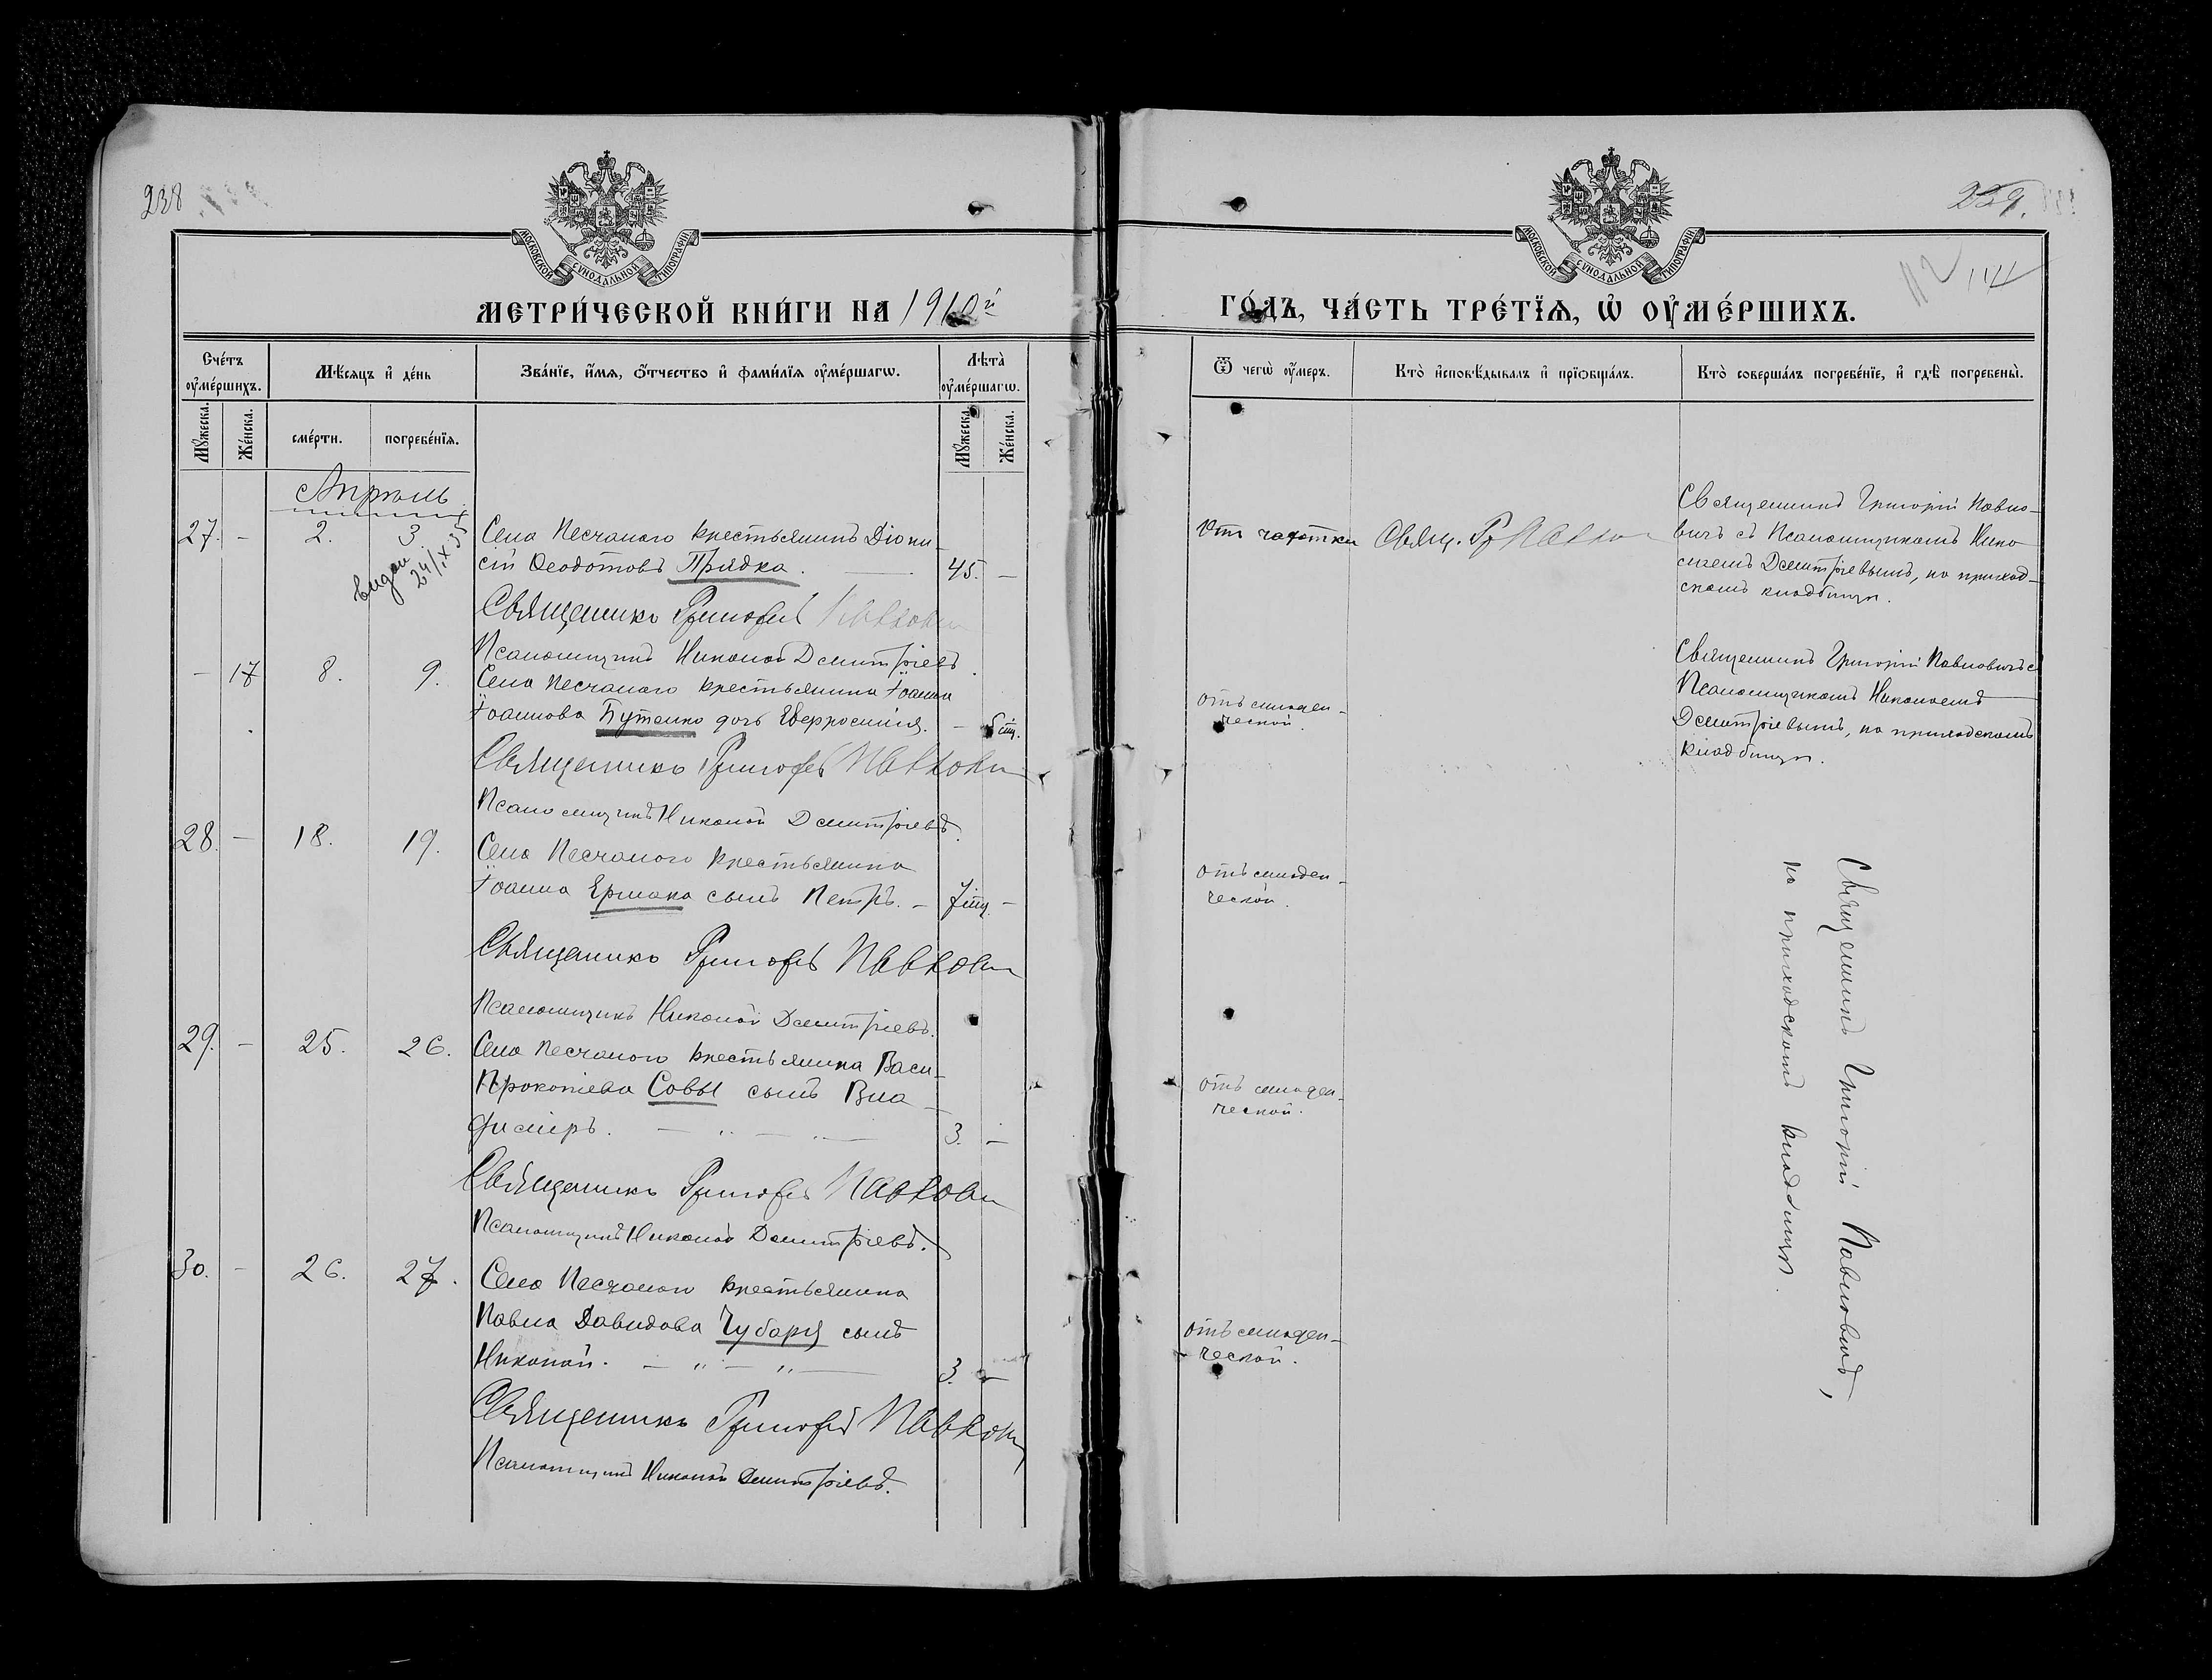 238
МОСКОВСКОЙ СѴНОДАЛЬНОЙ ТИПОГРАФІИ
МЕТРИ́ЧЕСКОЙ КНИ́ГИ НА 1910й
Сче́тъ ᲂу҆ме́ршихъ.
Мѣ́сяцъ и҆ де́нь
Зва́нїе, и҆́мѧ, ѻ҆́тчество и҆ фами́лїѧ ᲂу҆ме́ршагѡ.
Лѣта̀ ᲂу҆ме́ршагѡ.
Мꙋ́жеска.
Же́нска.
сме́рти.
погребе́нїѧ.
Мꙋ́жеска.
Же́нска.
Апрѣль
27. - 2. 3. Села Песчаного крестьянинъ Діони-
сій Ѳеодотовъ Прядка. 45. -
выдан 24/IX 35
Священникъ Григорій Павлович
Псаломщикъ Николай Димитріевъ.
- 17 8. 9. Села Песчаного крестьянина Іоанна
Іоаннова Бутенко дочь Евфросинія. -
Священникъ Григорій Павлович
Псаломщикъ Николай Димитріевъ.
28. - 18. 19. Села Песчаного крестьянина
Іоанна Ермака сынъ Петръ. - 7 мц. -
Священникъ Григорій Павлович
Псаломщикъ Николай Димитріевъ.
29. - 25. 26. Села Песчаного крестьянина Васи-
Прокопіева Совы сынъ Вла-
диміръ. 3. -
Священникъ Григорій Павлович
Псаломщикъ Николай Димитріевъ.
30. - 26. 27. Села Песчаного крестьянина
Павла Давидова Чубаря сынъ
Николай. 3. -
Священникъ Григорій Павлович
Псаломщикъ Николай Димитріевъ.
239.
112 114
МОСКОВСКОЙ СѴНОДАЛЬНОЙ ТИПОГРАФІИ
ГО́ДЪ, ЧА́СТЬ ТРЕ́ТЇѦ, Ѡ҆ ОУ҆МЕ́РШИХЪ.
Ѿ чегѡ̀ ᲂу҆́меръ.
Кто̀ и҆сповѣ́дывалъ и҆ прїѡбща́лъ.
Кто̀ соверша́лъ погребе́нїе, и҆ гдѣ̀ погребены̀.
Отъ чахотки Свящ. Гр Павлович
Священникъ Григорій Павло-
вичъ съ Псаломщикомъ Нико
лаемъ Димитріевымъ, на приход-
скомъ кладбищѣ.
отъ младен-
ческой.
Священникъ Григорій Павловичъ с
Псаломщикомъ Николаемъ
Димитріевымъ, на приходскомъ
кладбищѣ.
отъ младен-
ческой.
отъ младен-
ческой.
отъ младен-
ческой.
Священникъ Григорій Павловичъ,
на приходскомъ кладбищѣ.